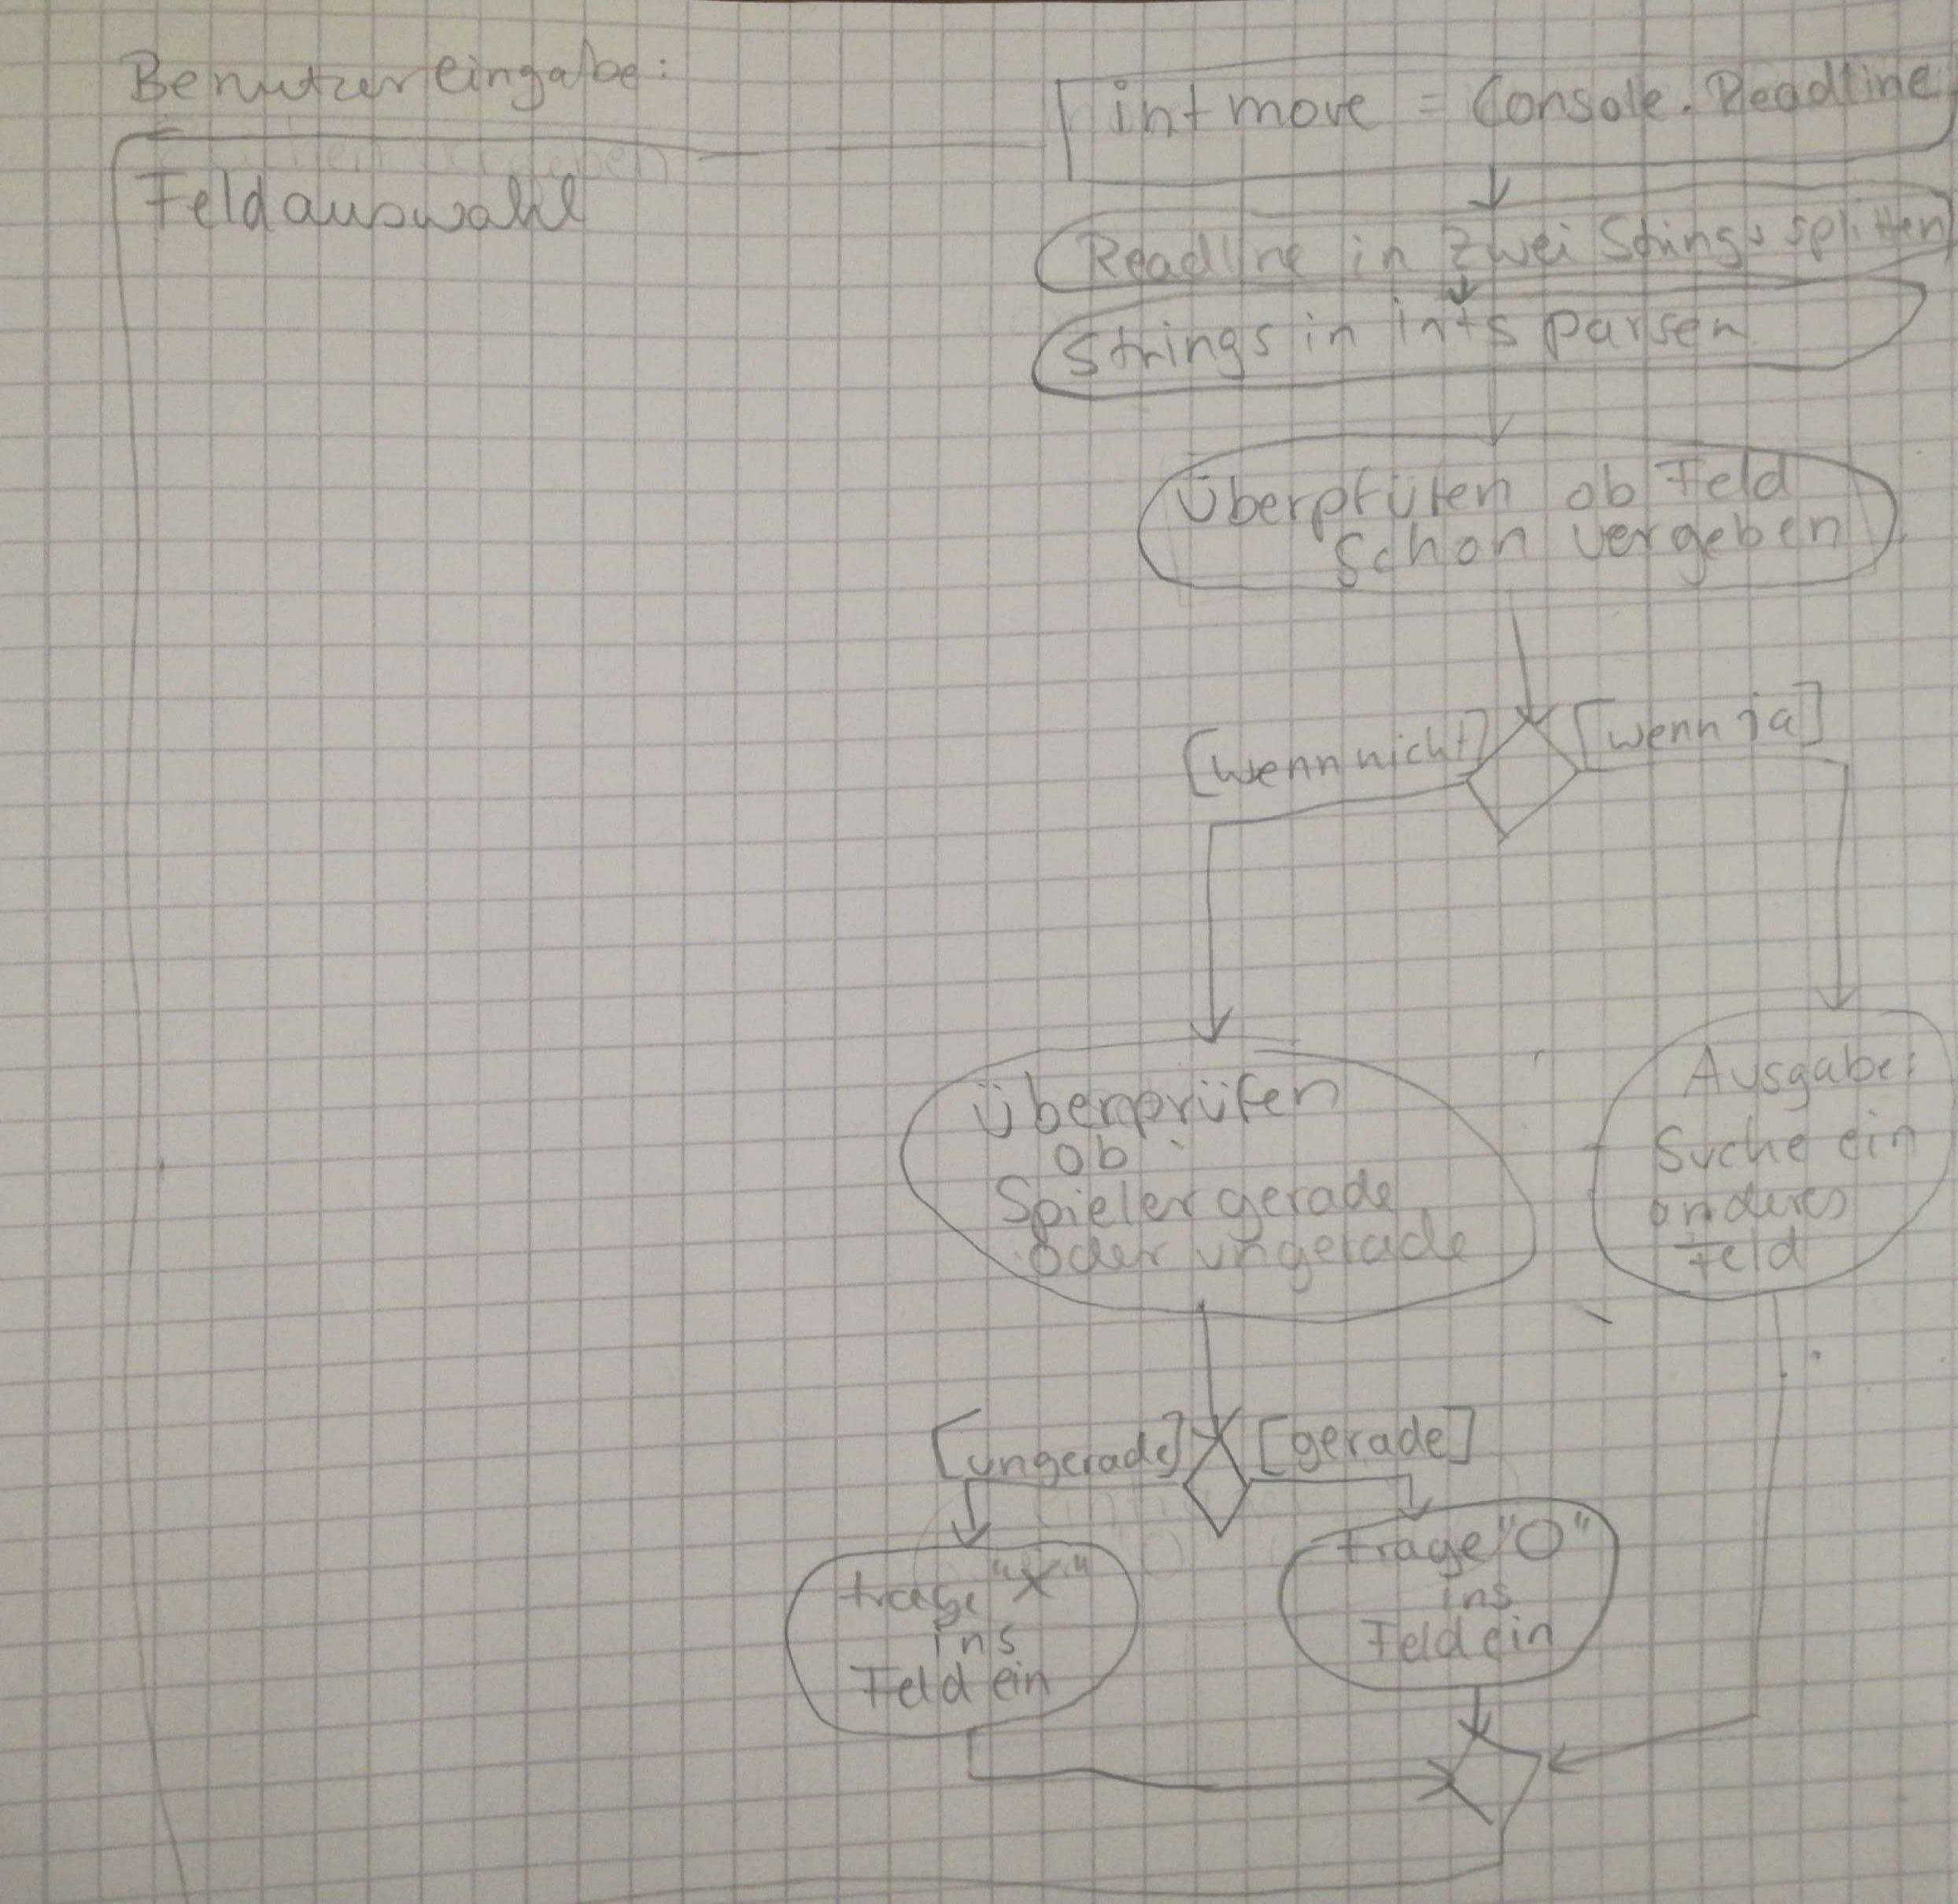 Benutzereingabe:
int move = Console.Readline
Feldauswahl
Readline in zwei Strings splitten
Strings in ints parsen
Überprüfen ob Feld
schon vergeben
[wenn nicht] [wenn ja]
Überprüfen
ob
Spieler gerade
oder ungerade
Ausgabe:
Suche ein
anderes
Feld
[ungerade] [gerade]
trage "X"
ins
Feld ein
trage "O"
ins
Feld ein